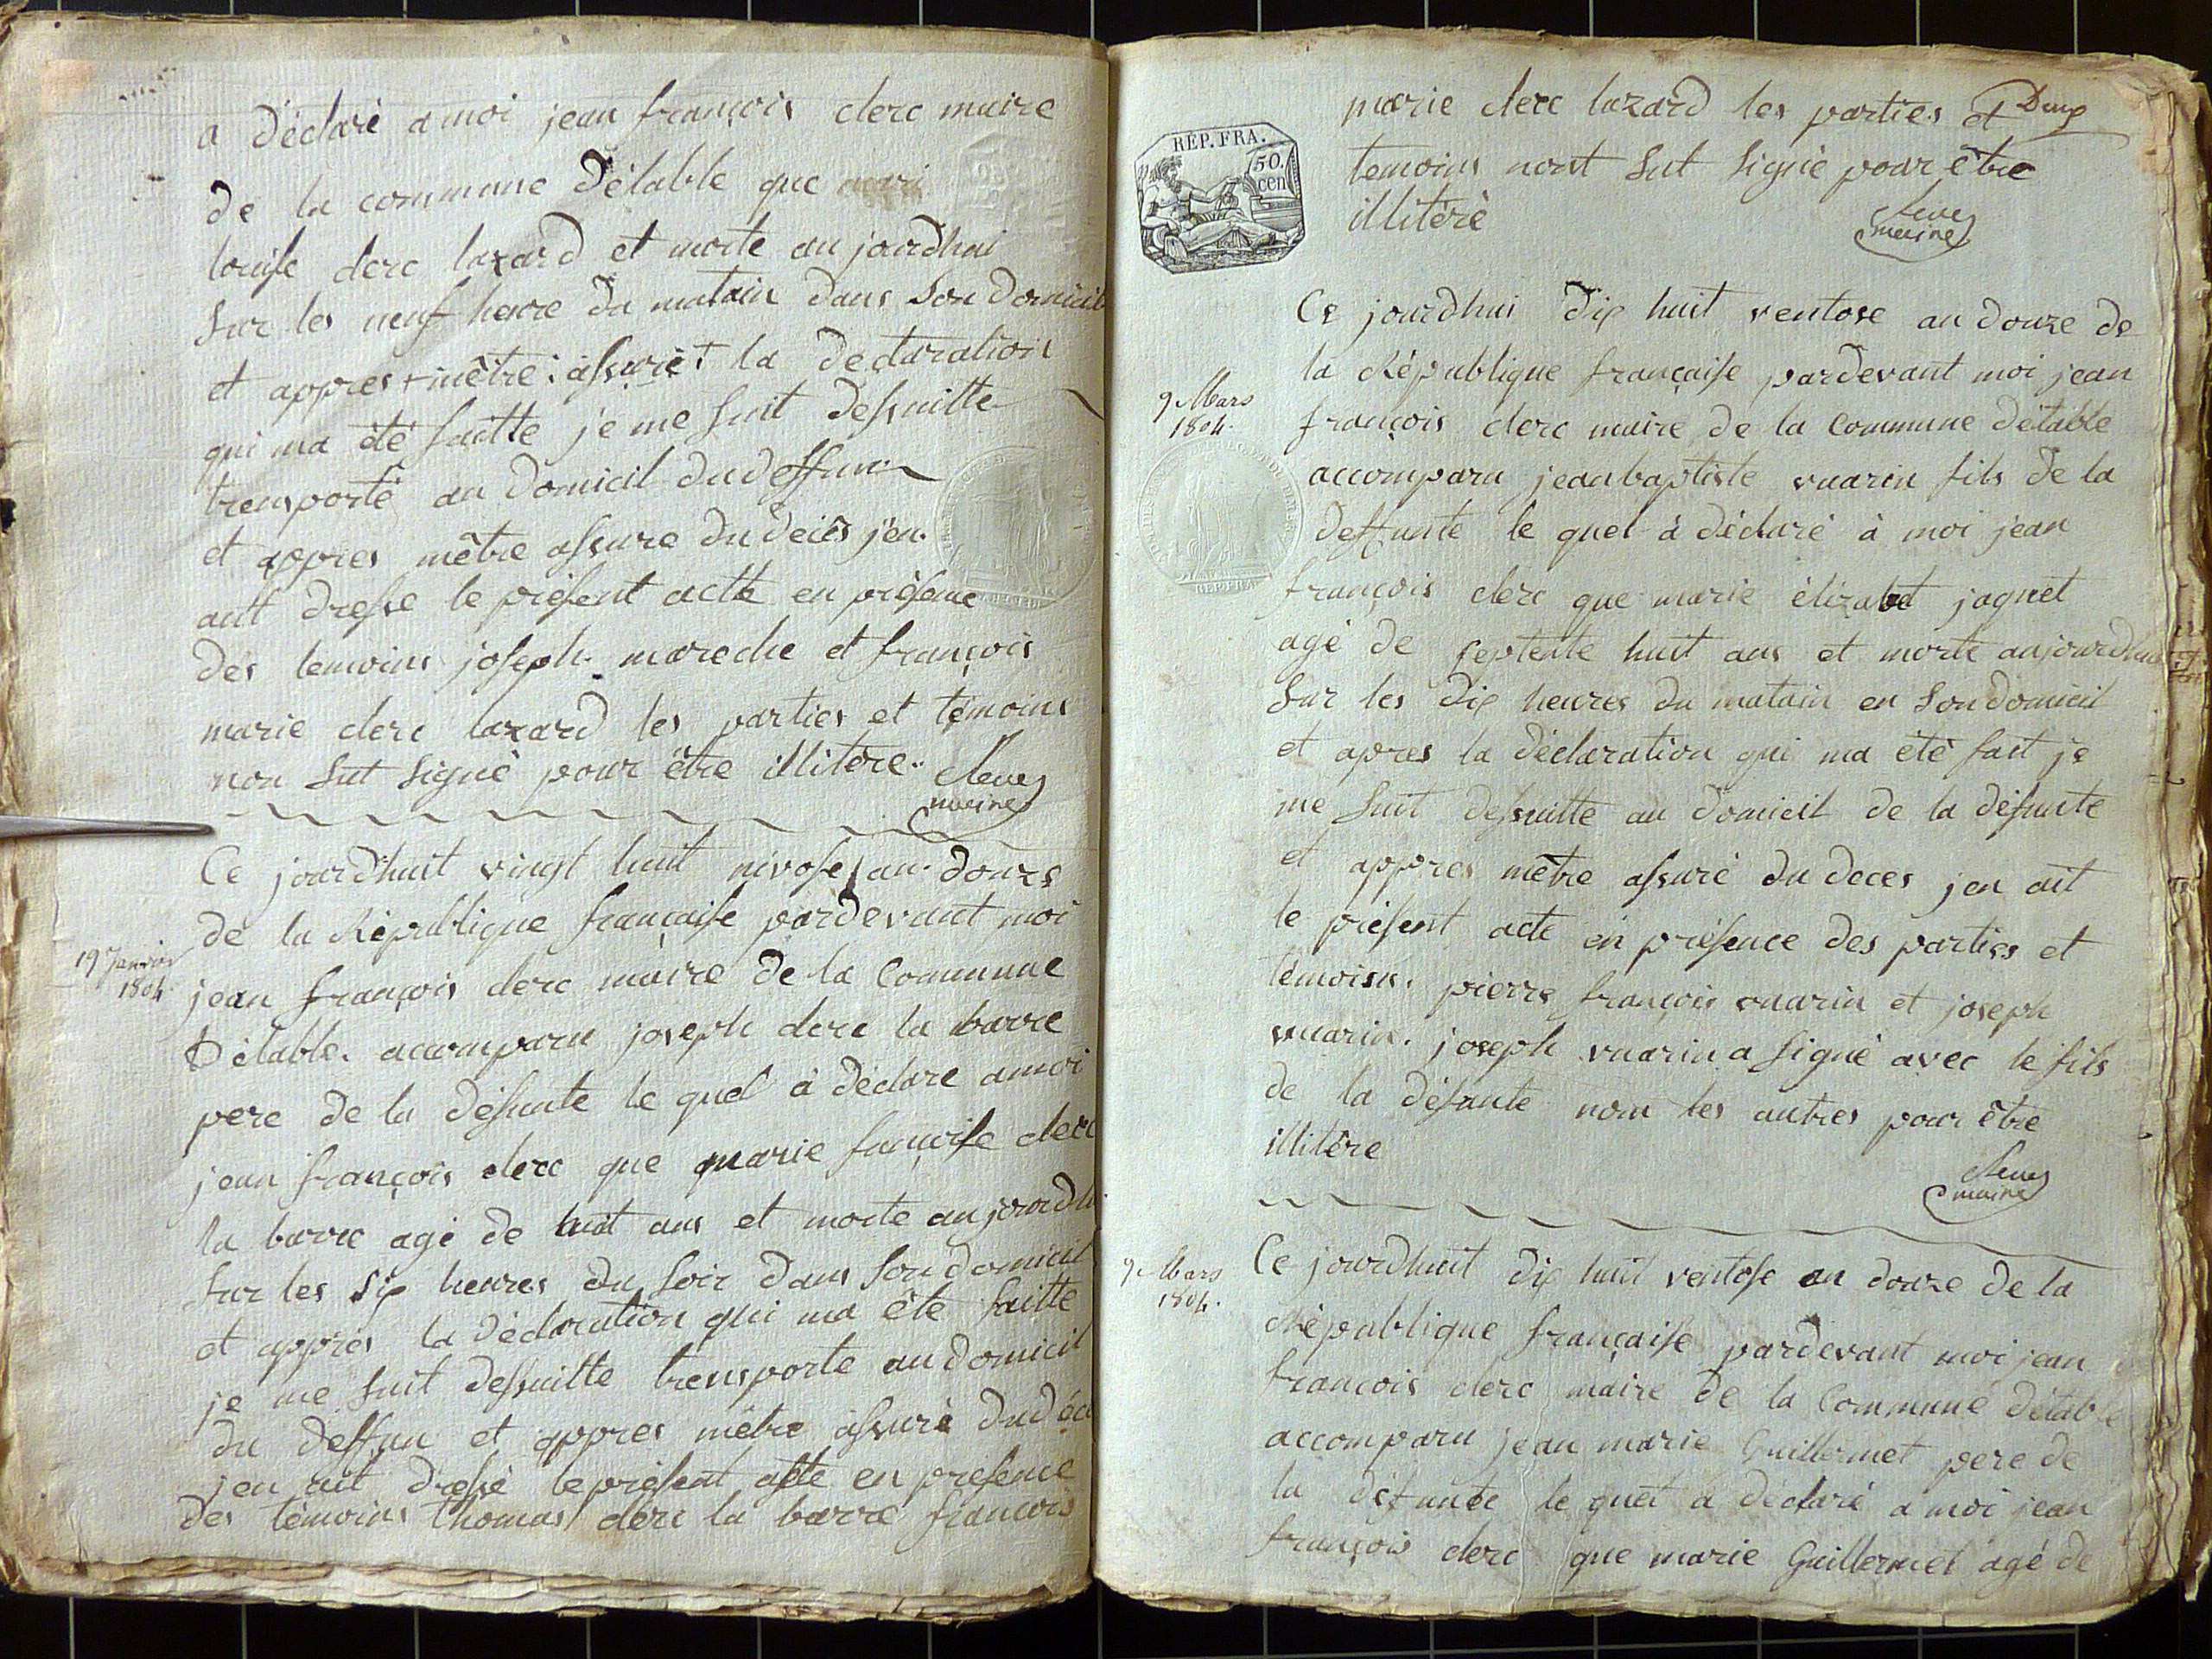 a déclaré a moi jean françois clerc maire
de la commune détable que
louise clerc lazard et morte au jourdhui
sur les neuf heure du matain dans son domicil
et appres mêtre assuré la declaration
qui ma été faitte je me suit dessuitte
trensporté au domicil du deffun
et appres mêtre assure du décès jen
ait dresse le présent acte en présence
des temoins joseph mareche et françois
marie clerc lazard les parties et témoins
non sut signé pour être illitère.
maire
Ce jourdhuit vingt huit nivose an douze
de la République française pardevant moi
19 Janvier
1804.
jean françois clerc maire de la Commune
Détable. accomparu joseph clerc la barre
pere de la défunte le quel à déclare a moi
jean françois clerc que marie françoise clerc
la barre agé de huit ans et morte au jourdhui
sur les six heures du soir dans son domicil
et appres la déclaration qui ma été faitte
je me suit dessuitte trensporte au domicil
du deffun et appres mêtre assuré du déce
jen ait dressé le présent acte en presence
des témoins thomas clerc la barre françois
marie clerc lazard les parties et Deux
RÉP. FRA.
50.
cen
temoins nont sut signé pour être
illitéré
maire
Ce jourdhui dix huit ventose an douze de
la République française pardevant moi jean
9 Mars
1804.
françois clerc maire de la Commune détable
accomparu jean baptiste vuarin fils de la
deffunte le quel à déclaré à moi jean
françois clerc que marie élizabet jaquet
agé de septente huit ans et morte aujourdhui
sur les dix heures du matain en son domicil
et apres la déclaration qui ma été fait je
me suit dessuitte au domicil de la défunte
et appres mêtre assuré du deces jen ait
le présent acte en présence des parties et
témoisn. pierre françois vuarin et joseph
vuarin. joseph vuarin a signé avec le fils
de la défunte nom les autres pour être
illitére
maire
Ce jourdhuit dix huit ventose an douze de la
9 Mars
1804.
République française pardevant moi jean
francois clerc maire de la Commune détable
accomparu jean marie Guillermet pere de
la défunte le quel a déclaré a moi jean
françois clerc que marie Guillermet agé de